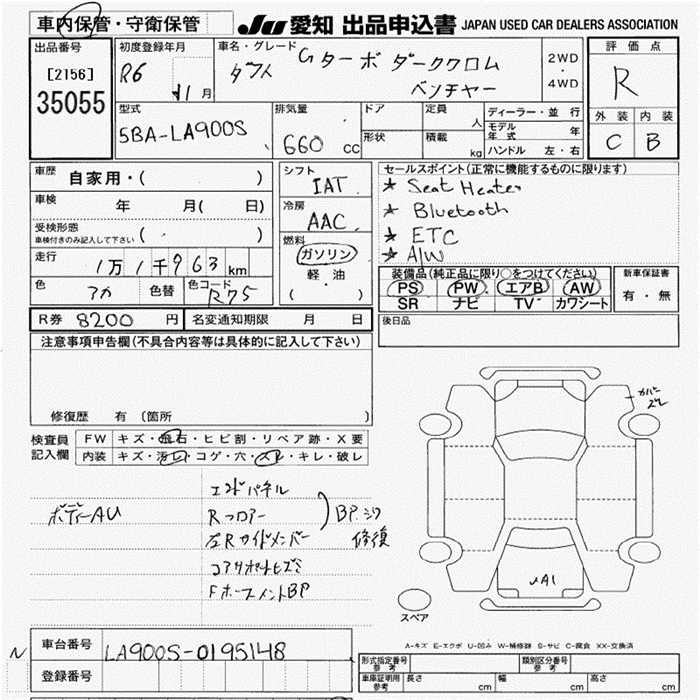 車内保管・守衛保管
JU 愛知 出品申込書 JAPAN USED CAR DEALERS ASSOCIATION
出品番号
[2156]
35055
初度登録年月
R6 11月
車名・グレード
タフト
Gターボ ダーククロム
ベンチャー
2WD
・
4WD
評価点
R
外装 内装
C B
型式
5BA-LA900S
排気量
660 CC
ドア
形状
定員 人
積載 kg
ディーラー・並行
モデル年式 年
ハンドル 左・右
車歴 自家用・( )
車検 年 月( 日)
受検形態
車検付きのみ記入して下さい ( )
走行
1万1千963km
色 アカ 色替 色コード R75
R券 8200 円 名変通知期限 月 日
シフト
IAT
冷房
AAC
燃料
ガソリン
軽・油
( )
セールスポイント(正常に機能するものに限ります)
★ Seat Heater
★ Bluetooth
★ ETC
★ A/W
装備品(純正品に限り○をつけてください)
PS PW エアB AW
SR ナビ TV カワシート
新車保証書
有・無
後日品
注意事項申告欄(不具合内容等は具体的に記入して下さい)
修復歴 有 (箇所 )
検査員
記入欄
FW キズ・飛石・ヒビ割・リペア跡・X要
内装 キズ・汚れ・コゲ・穴・スレ・キレ・破レ
ボディーAU
エンドパネル
Rフロアー
左Rサイドメンバー
コアサポートヒズミ
FホースメントBP
BP.シワ
修復
カバー
ズレ
A1
スペア
A-キズ E-エクボ U-凹み W-補修跡 S-サビ C-腐食 XX-交換済
車台番号 LA900S-0195148
登録番号
形式指定番号
参考
類別区分番号
参考
車庫証明用
参考
長さ cm 幅 cm 高さ cm